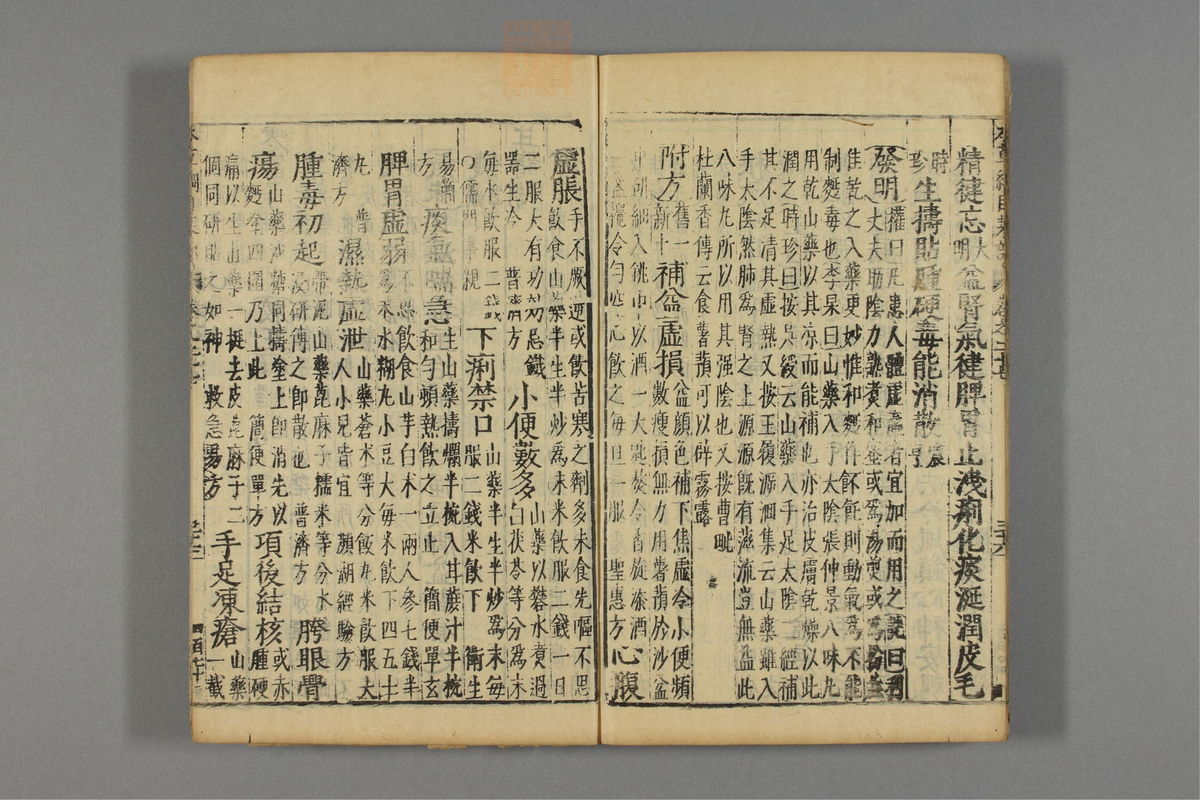 精健忘大明益腎氣健脾胃止洩痢化痰涎潤皮毛
時珍生擣貼腫硬毒能消散震亨
發明權曰凡患人體虛羸者宜加而用之詵曰利
丈夫助陰力熟煮和蜜或為湯煎或為粉並
佳乾之入藥更妙惟和麪作餺飥則動氣為不能
制麪毒也李杲曰山藥入手太陰張仲景八味丸
用乾山藥以其涼而能補也亦治皮膚乾燥以此
潤之時珍曰按吳綬云山藥入手足太陰二經補
其不足清其虛熱又按王履溯洄集云山藥雖入
手太陰然肺為腎之上源源既有滋流豈無益此
八味丸所以用其强陰也又按曹毗
杜蘭香傳云食薯蕷可以辟霧露
附方舊一新十補益虛損益顏色補下焦虛冷小便頻
數瘦損無力用薯蕷於沙盆
以酒一大匙熬令香旋添酒
攪令勻空心飲之每旦一服聖惠方心腹
虛脹手不厥逆或飲苦寒之劑多未食先嘔不思
飲食山藥半生半炒為末米飲服二錢一日
二服大有功効忌鐵
器生冷普濟方小便數多山藥以礬水煮過
白茯苓等分為末
每水飲服二錢
○儒門事親下痢禁口山藥半生半炒為末每
服二錢米飲下衛生
易簡
方痰氣喘急生山藥擣爛半椀入甘蔗汁半椀
和勻頓熱飲之立止簡便單玄
脾胃虛弱不思飲食山芋白朮一兩人參七錢半
為末水糊丸小豆大每米飲下四五十
丸普
濟方濕熱虛泄山藥蒼朮等分飯丸米飲服大
人小兒皆宜瀕湖經驗方
腫毒初起帶泥山藥蓖麻子糯米等分水
浸研傅之即散也普濟方胯眼臀
瘍山藥沙糖同擣塗上即消先以
麪塗四圍乃上此簡便單方項後結核或赤
腫硬
痛以生山藥一挺去皮蓖麻子二
個同研貼之如神救急易方手足凍瘡山藥
一截